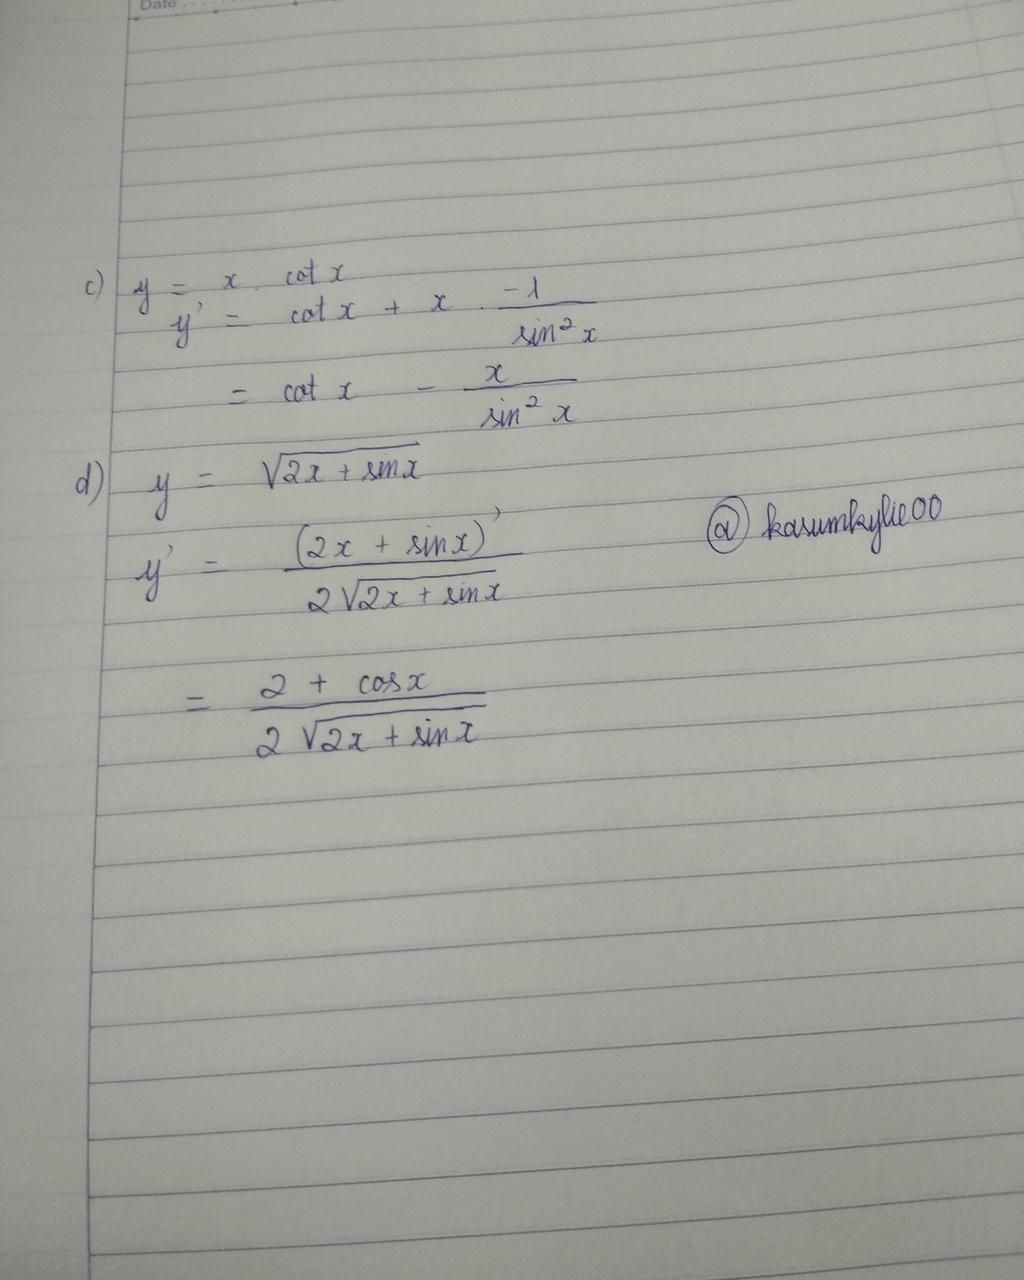 Date
c) y = x . cot x
y' = cot x + x . -1/sin² x
= cot x - x/sin² x
d) y = √(2x + sinx)
y' = (2x + sinx)'/2√(2x + sinx)
@kasumkylie00
= 2 + cosx/2√(2x + sinx)